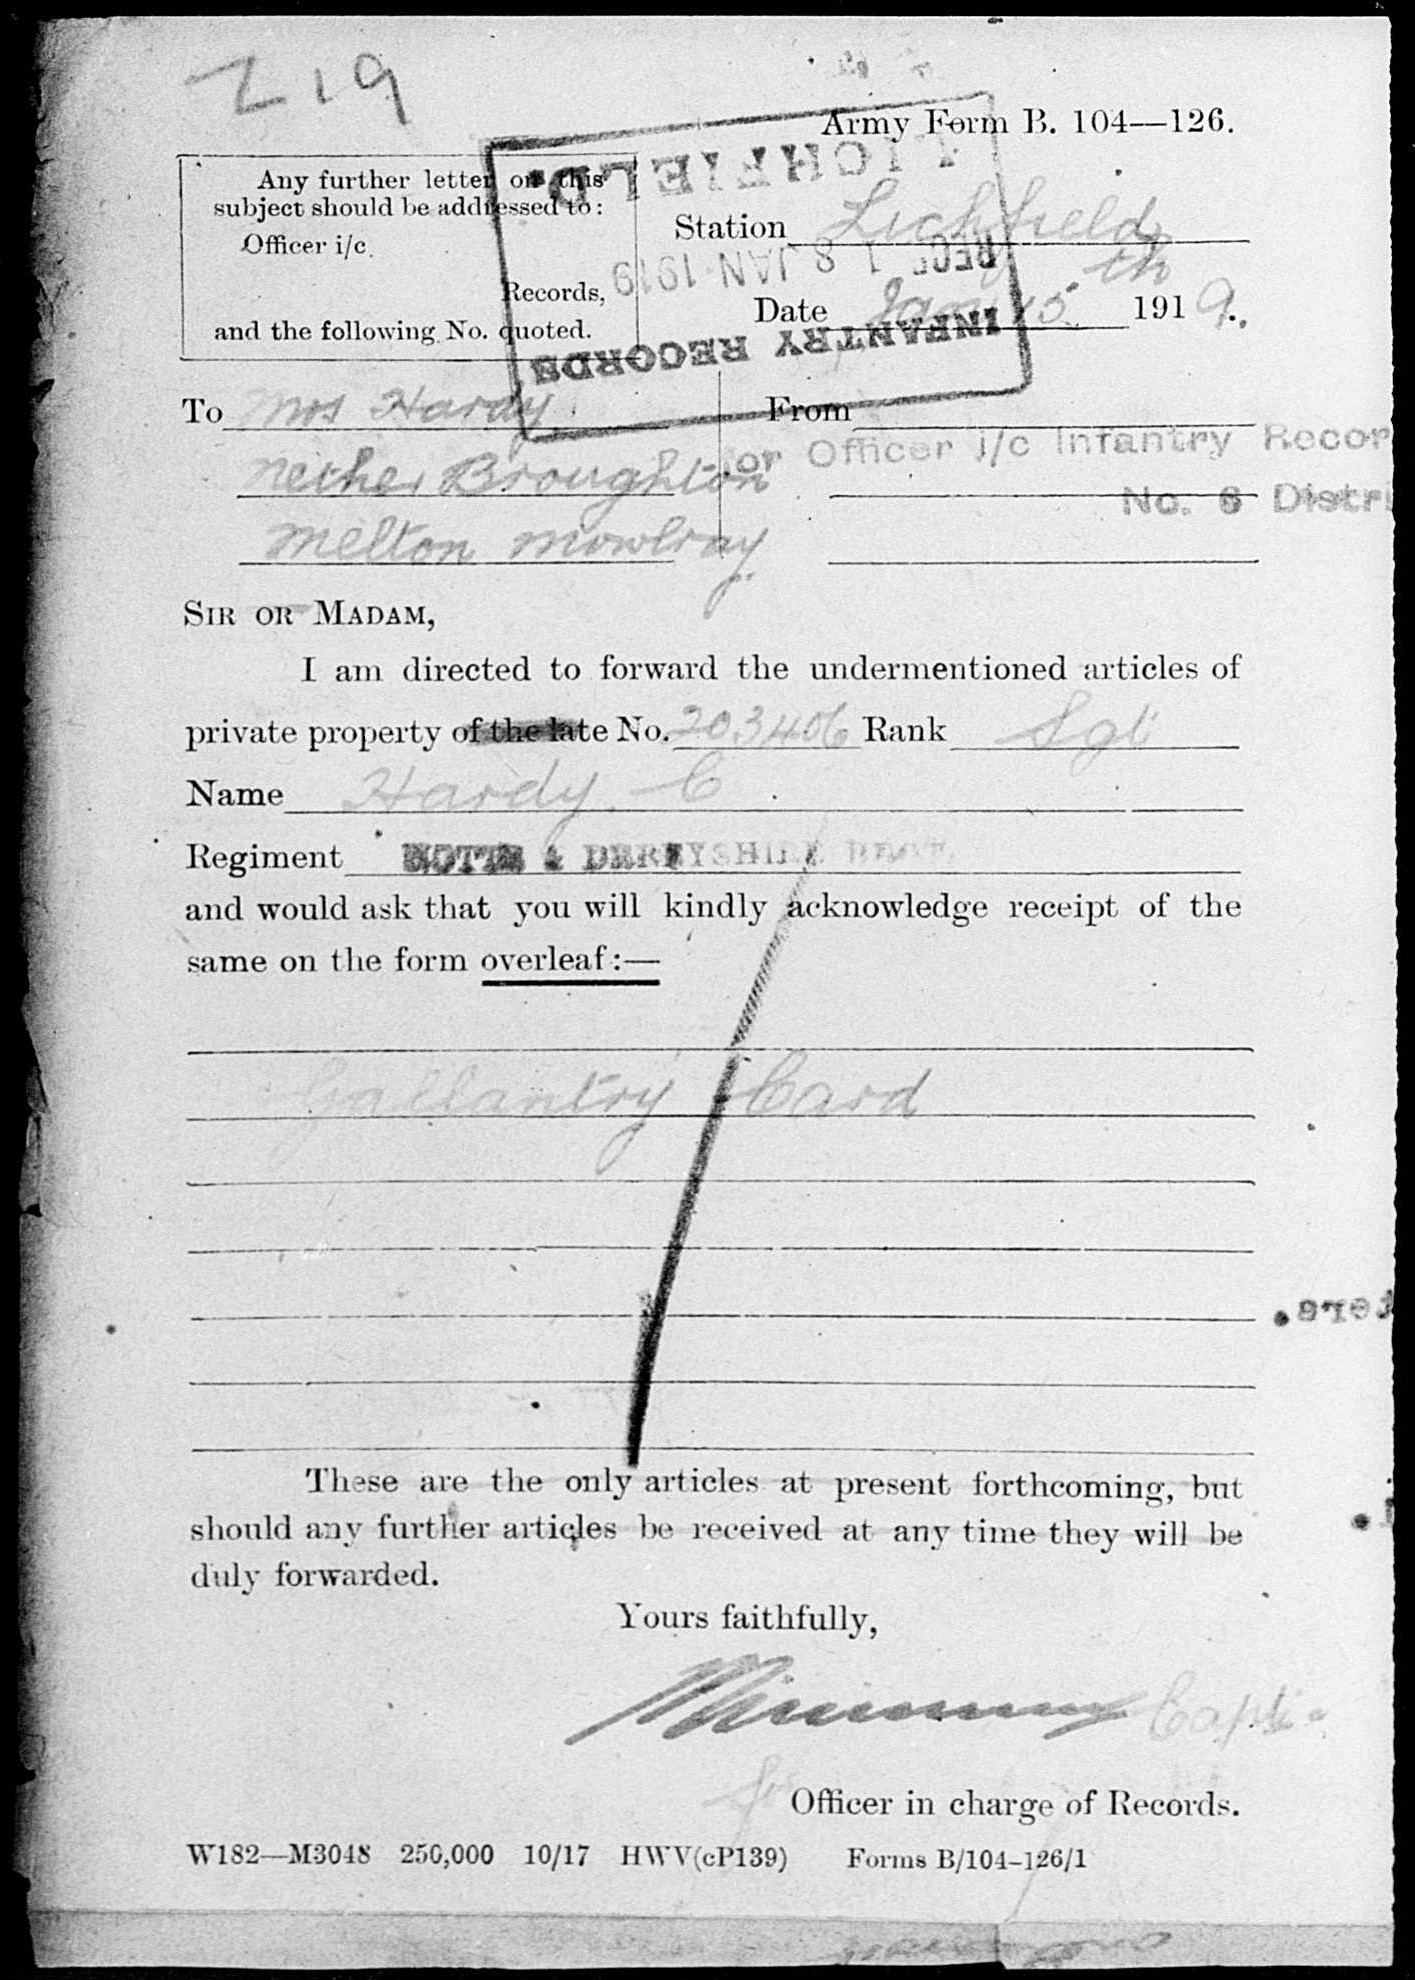 Z19
Army Form B. 104—126.
Any further letter on this
subject should be addressed to:
Officer i/c.
Records,
and the following No. quoted.
LICHFIELD
RECD 18 JAN 1919
INFANTRY RECORDS
Station Lichfield
Date Jan 15th 1919.
To Mrs Hardy
Nether Broughton
Melton Mowbray
From
for Officer i/c Infantry Recor
No. 6 Distri
SIR OR MADAM,
I am directed to forward the undermentioned articles of
private property of the late No. 203406 Rank Sgt
Name Hardy. C
Regiment NOTTS & DERBYSHIRE REGT.
and would ask that you will kindly acknowledge receipt of the
same on the form overleaf:—
Gallantry Card
These are the only articles at present forthcoming, but
should any further articles be received at any time they will be
duly forwarded.
Yours faithfully,
Capt.
Officer in charge of Records.
W182—M3048 250,000 10/17 HWV(cP139) Forms B/104-126/1